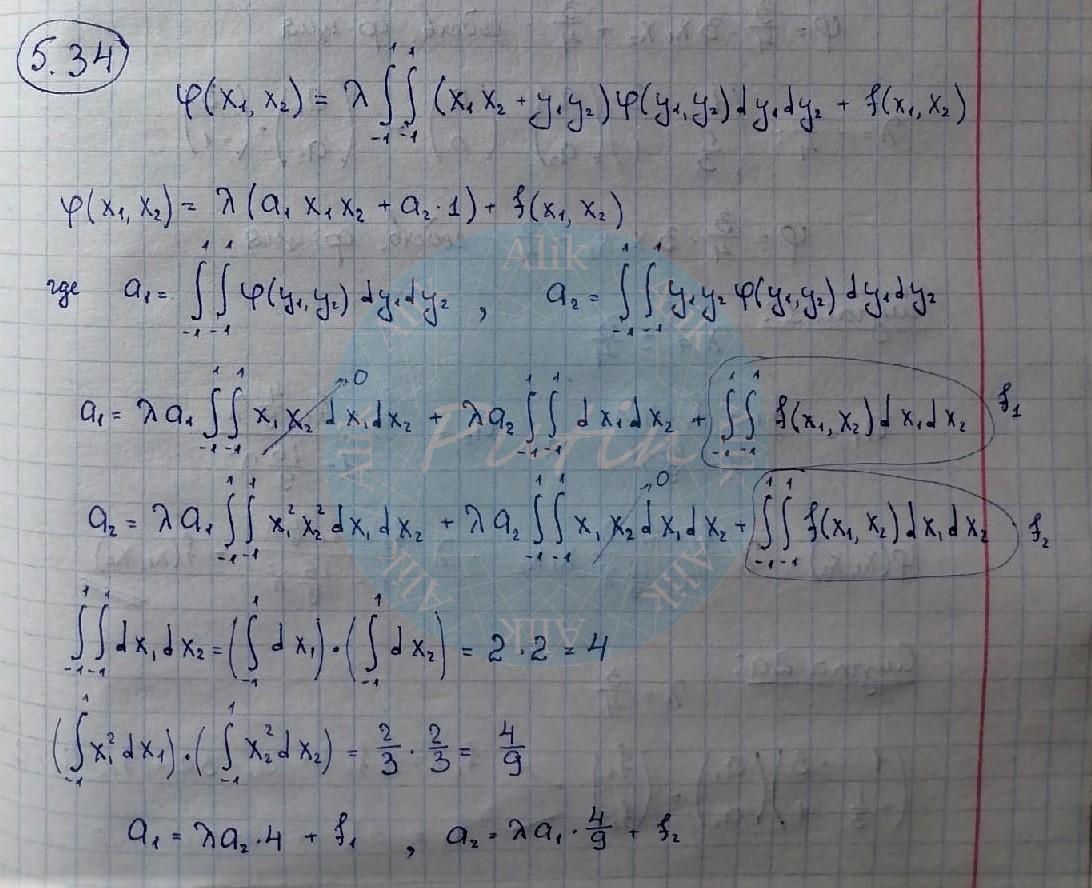 5.34
φ(x₁, x₂) = λ ∫₋₁¹∫₋₁¹ (x₁x₂ + y₁y₂) φ(y₁, y₂) dy₁dy₂ + f(x₁, x₂)
φ(x₁, x₂) = λ(a₁ x₁x₂ + a₂·1) + f(x₁, x₂)
где a₁ = ∫₋₁¹∫₋₁¹ φ(y₁, y₂) dy₁dy₂ , a₂ = ∫₋₁¹∫₋₁¹ y₁y₂ φ(y₁, y₂) dy₁dy₂
a₁ = λa₁ ∫₋₁¹∫₋₁¹ x₁x₂ dx₁dx₂ → 0 + λa₂ ∫₋₁¹∫₋₁¹ dx₁dx₂ + ∫₋₁¹∫₋₁¹ f(x₁, x₂) dx₁dx₂ f₁
a₂ = λa₁ ∫₋₁¹∫₋₁¹ x₁²x₂² dx₁dx₂ + λa₂ ∫₋₁¹∫₋₁¹ x₁x₂ dx₁dx₂ → 0 + ∫₋₁¹∫₋₁¹ f(x₁, x₂) dx₁dx₂ f₂
∫₋₁¹∫₋₁¹ dx₁dx₂ = (∫₋₁¹ dx₁)·(∫₋₁¹ dx₂) = 2·2 = 4
(∫₋₁¹ x₁² dx₁)·(∫₋₁¹ x₂² dx₂) = 2/3 · 2/3 = 4/9
a₁ = λa₂·4 + f₁ , a₂ = λa₁·4/9 + f₂
Alik
Putin
Alik
Alik
Alik
Alik
Alik
Alik
Alik